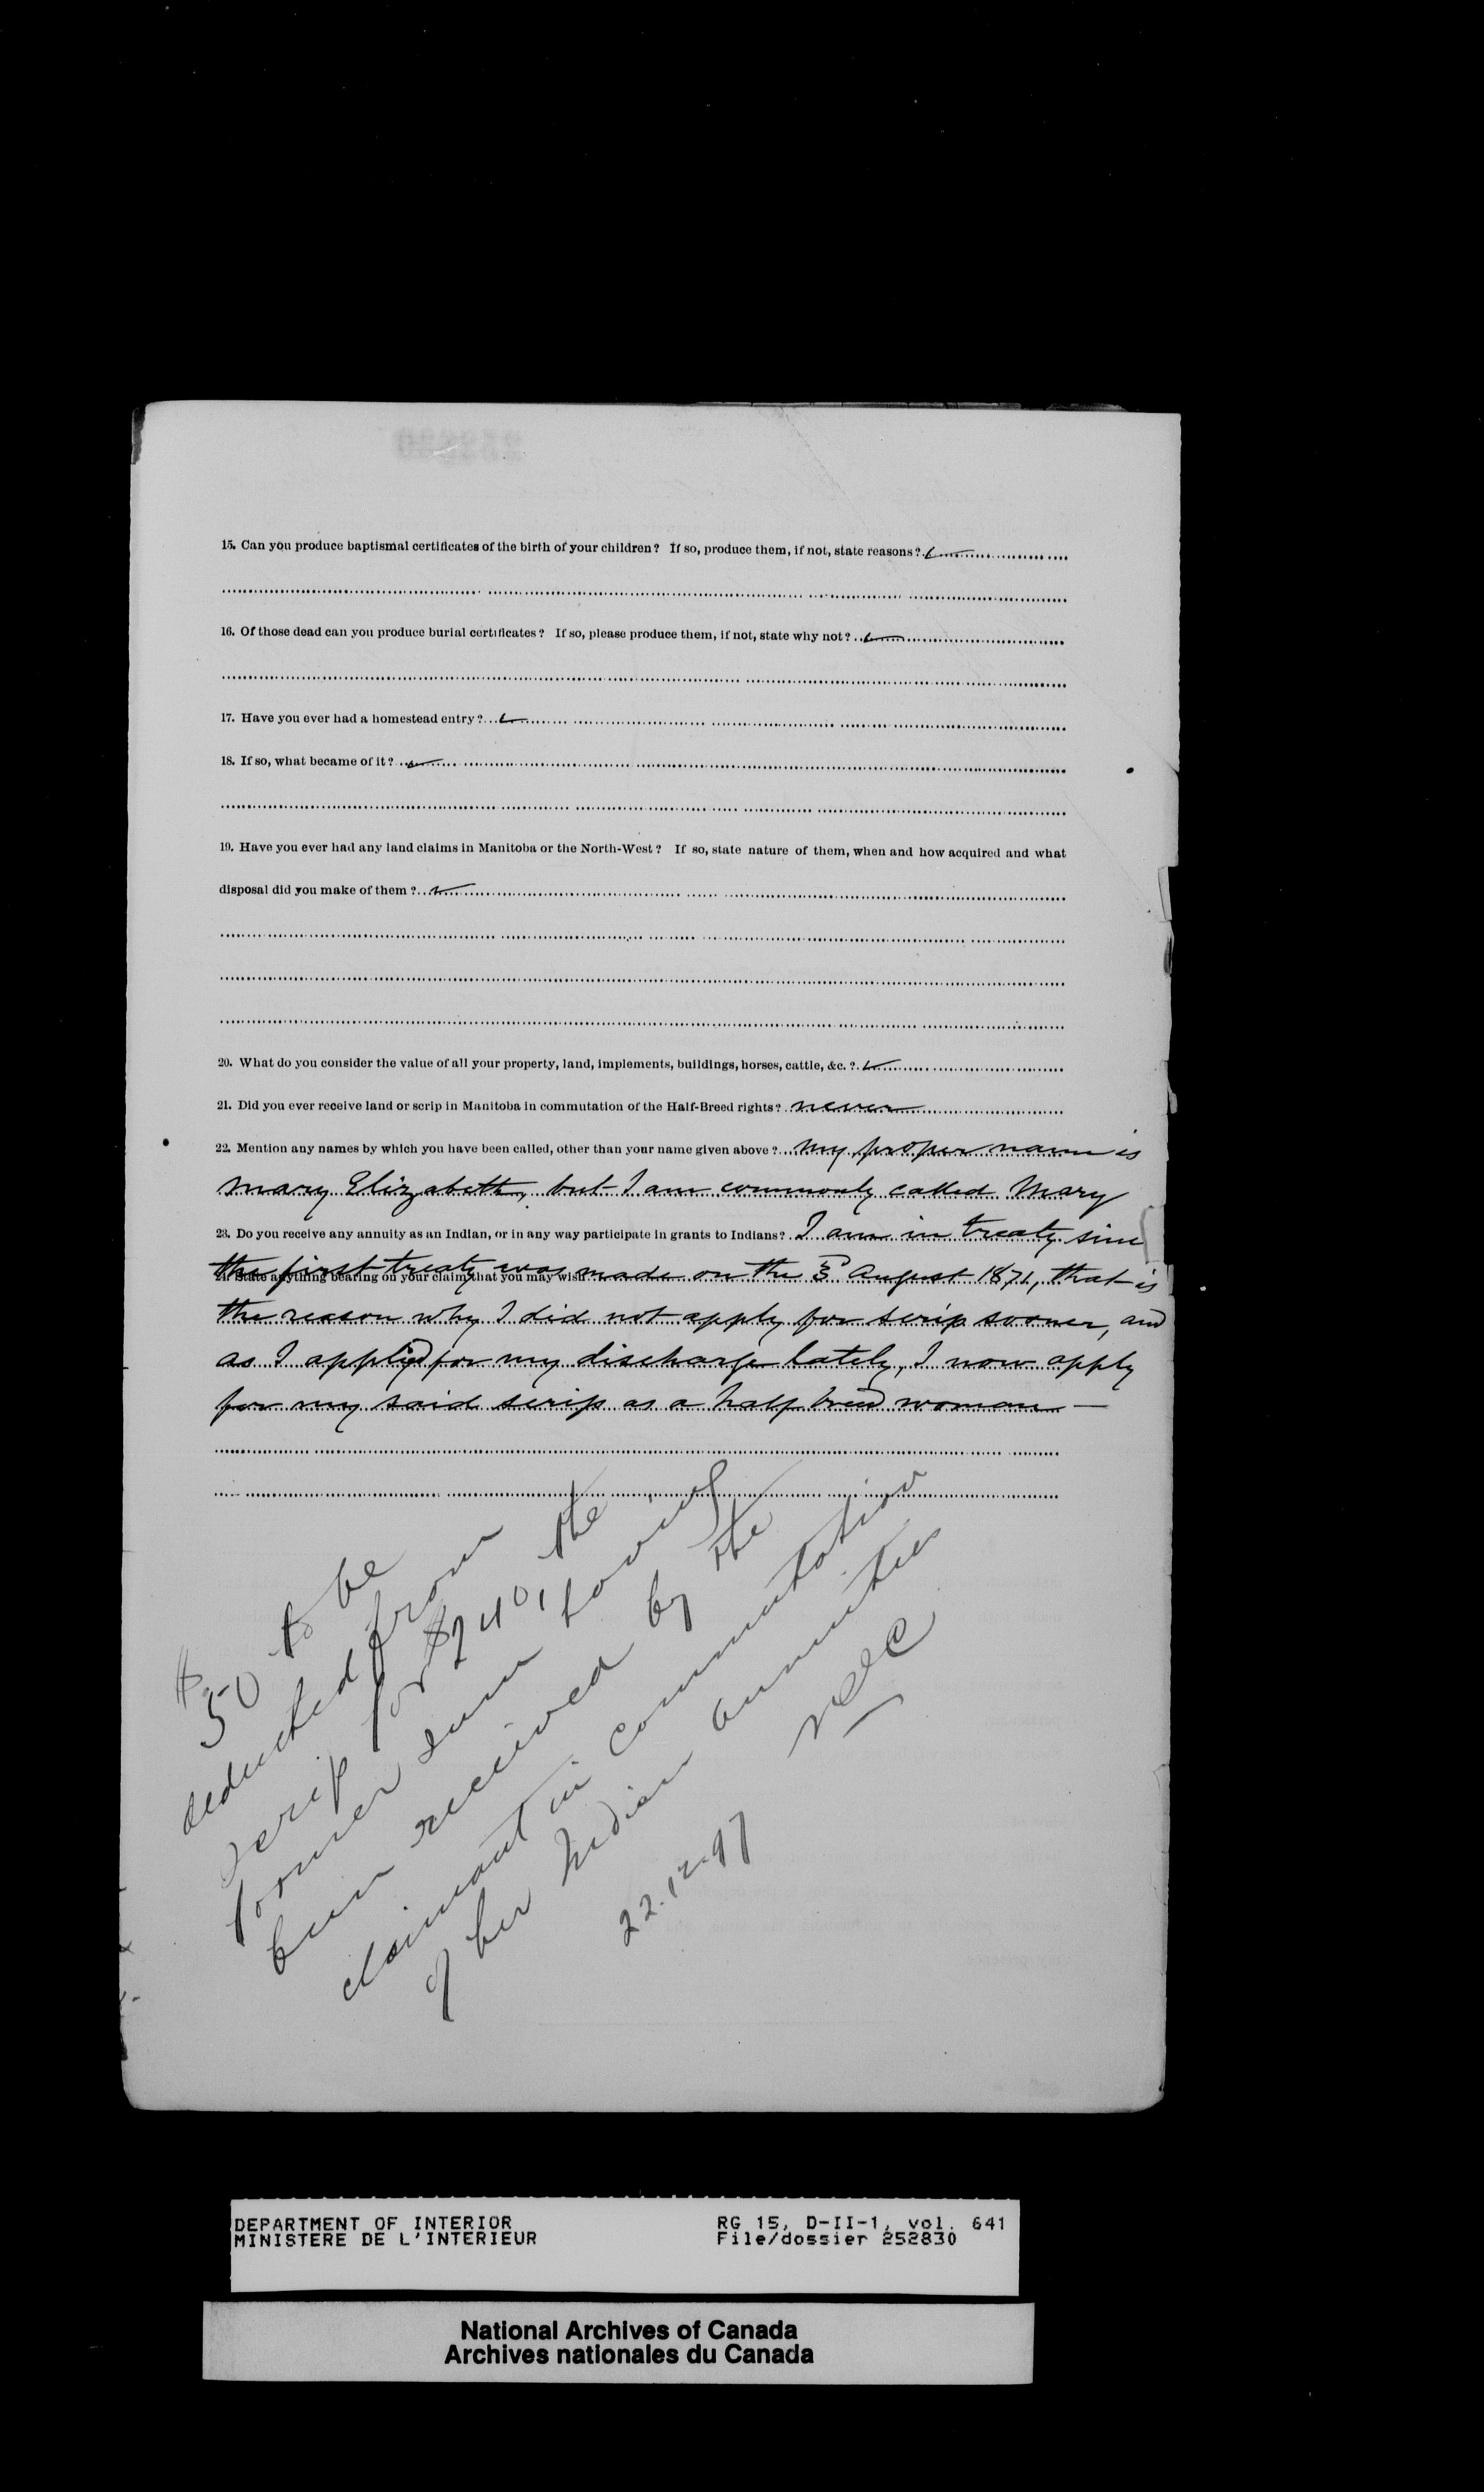 15. Can you produce baptismal certificates of the birth of your children? If so, produce them, if not, state reasons?
16. Of those dead can you produce burial certificates? If so, please produce them, if not, state why not?
17. Have you ever had a homestead entry?
18. If so, what became of it?
19. Have you ever had any land claims in Manitoba or the North-West? If so, state nature of them, when and how acquired and what
disposal did you make of them?
20. What do you consider the value of all your property, land, implements, buildings, horses, cattle, &c.?
21. Did you ever receive land or scrip in Manitoba in commutation of the Half-Breed rights? never
22. Mention any names by which you have been called, other than your name given above? My proper name is
Mary Elizabeth, but I am commonly called Mary
23. Do you receive any annuity as an Indian, or in any way participate in grants to Indians? I am in treaty since
24. State anything bearing on your claim that you may wish
the first treaty was made on the 3d August 1871, that is
the reason why I did not apply for scrip sooner, and
as I applied for my discharge lately, I now apply
for my said scrip as a half breed woman —
$50 to be
deducted from
scrip for $240, the
former sum having
been received by the
claimant in commutation
of her Indian annuities
22.12.97
DEPARTMENT OF INTERIOR
MINISTERE DE L'INTERIEUR
RG 15, D-II-1, vol. 641
File/dossier 252830
National Archives of Canada
Archives nationales du Canada